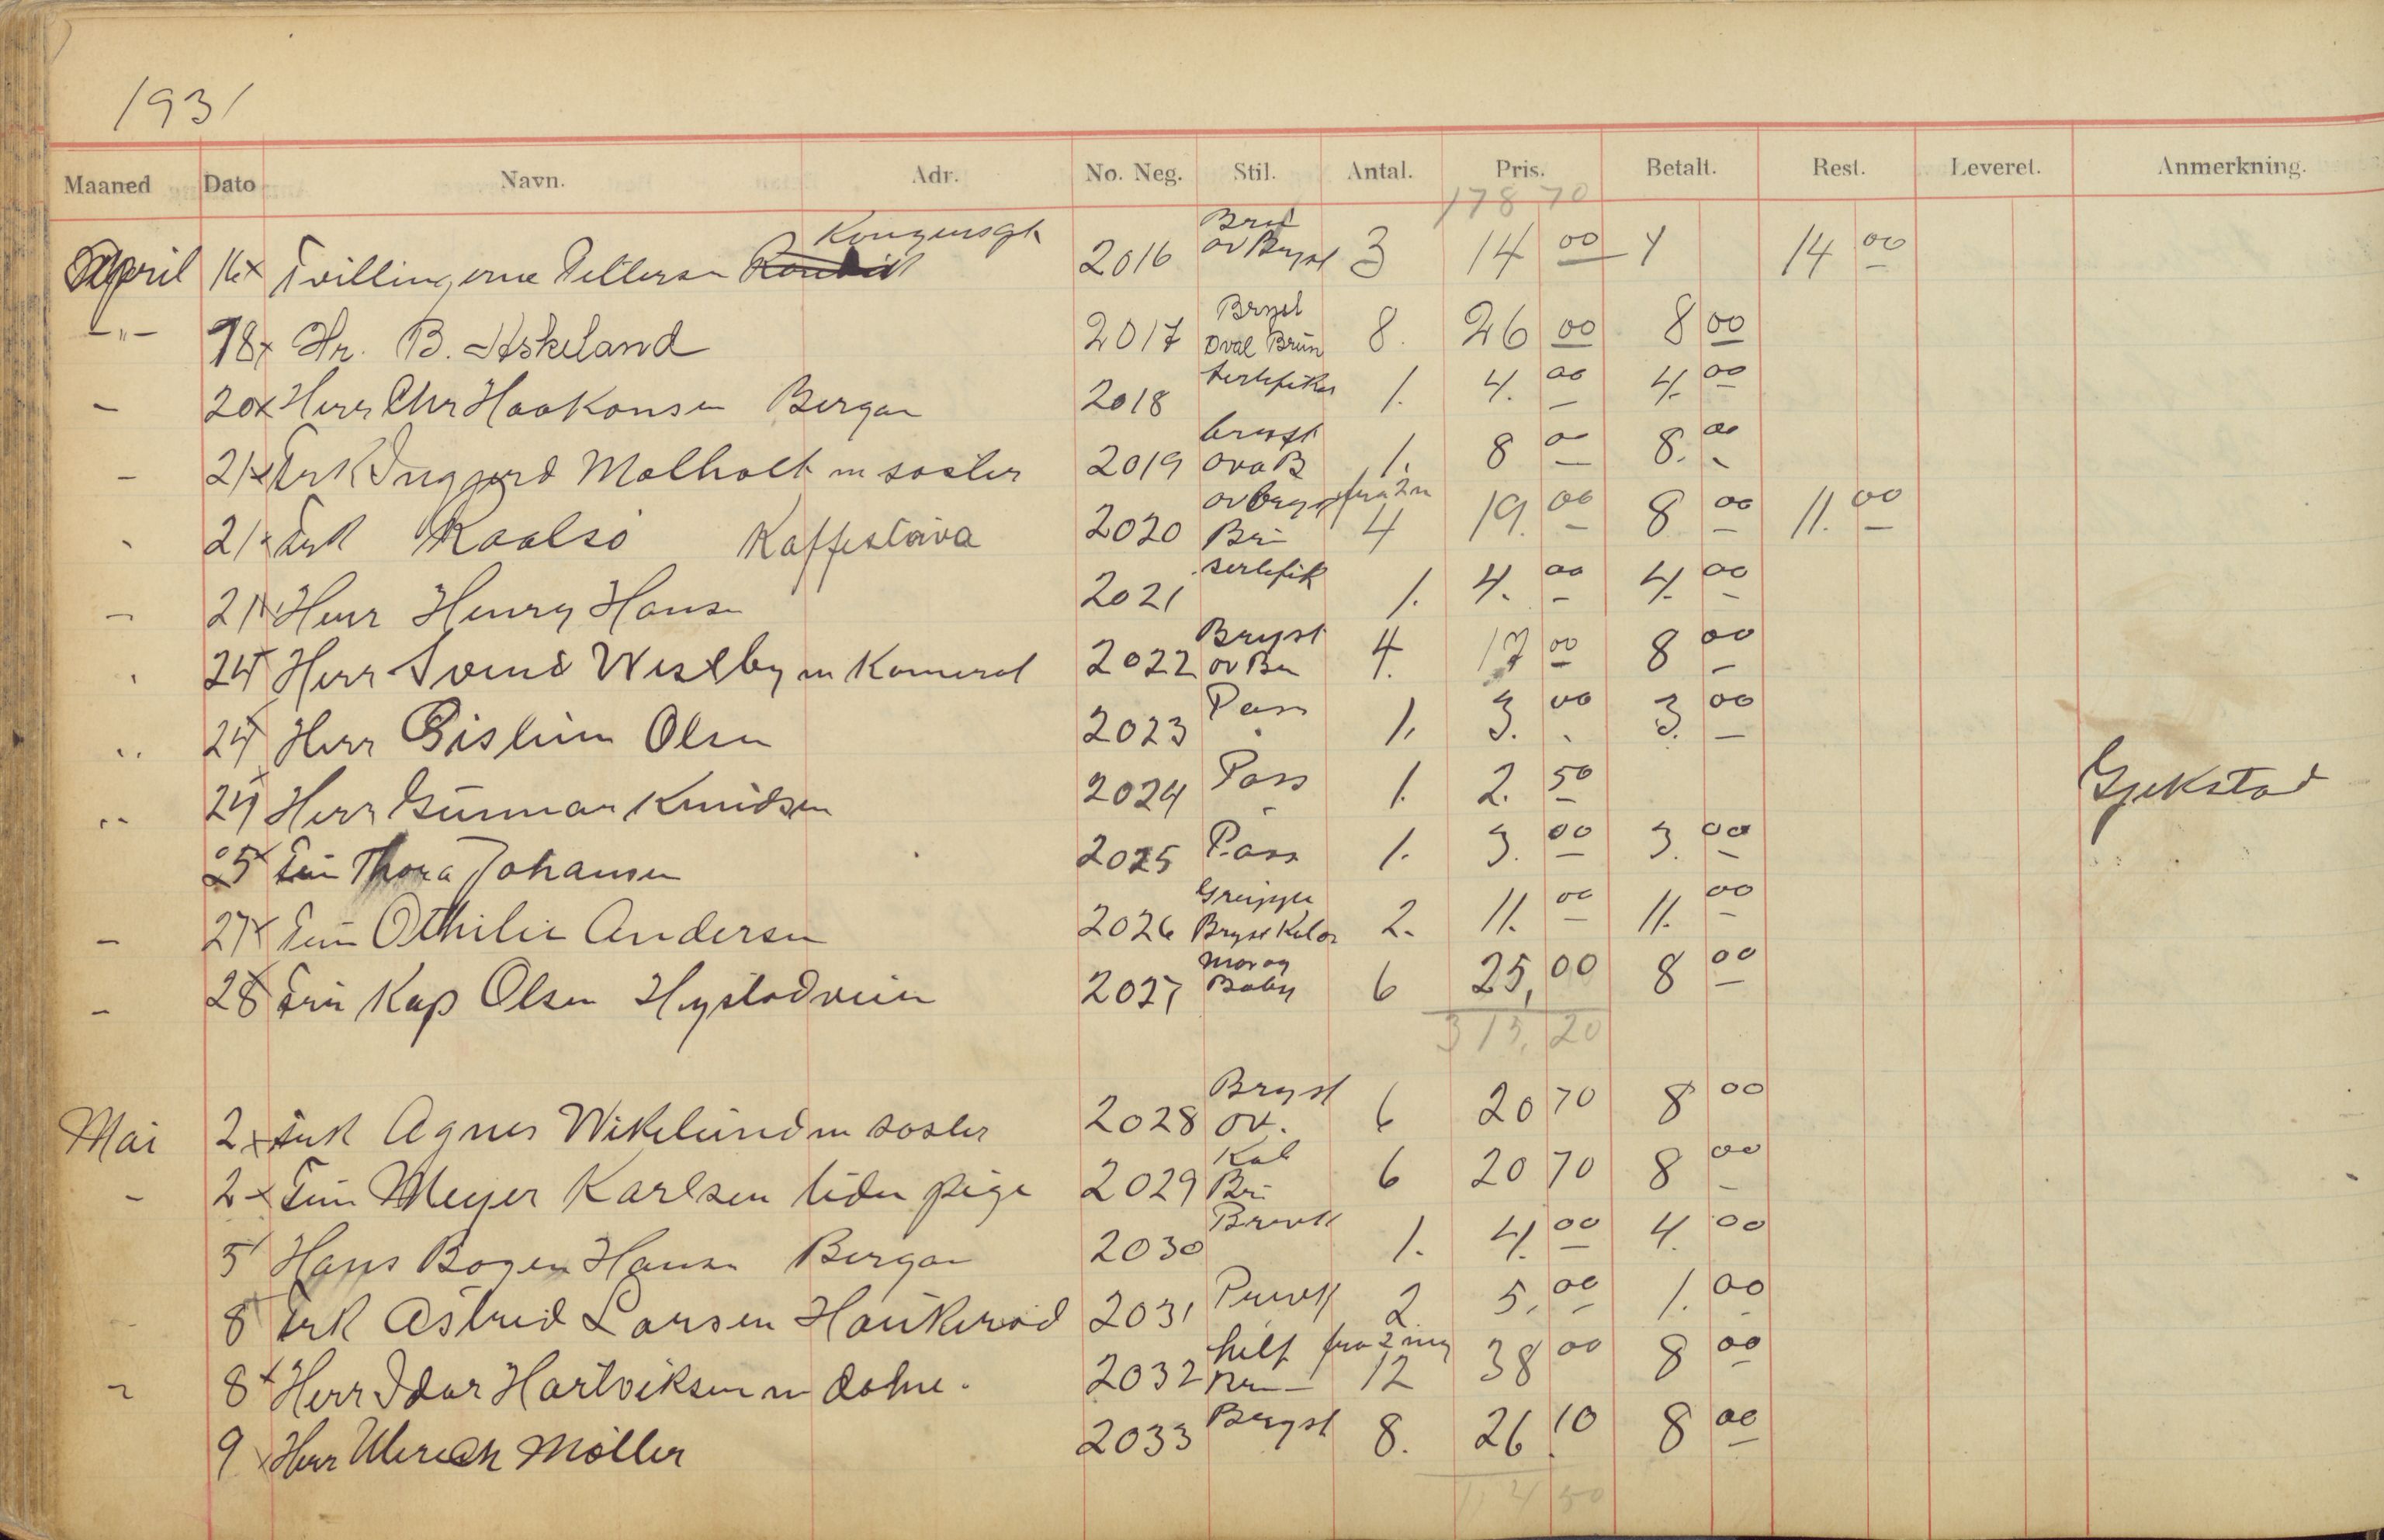 1931
Maaned Dato Navn. Adr. No. Neg. Stil. Antal. Pris. Betalt. Rest. Leveret. Anmerkning.
178 70
Kongensgt Bru
April 16x Tvillingerne Pettersen 2016 ov Bryst 3 14 00 14 00
Bryst
-"- 18x Hr. B. Askeland 2017 Oval Brun 8. 26 00 8 00
- 20x Herr Chr Haakonsen Bergan 2018 sertifikat 1. 4. 00 4. 00
bryst
- 21x Frk Inggerd Molholt m søster 2019 ova B 1. 8 00 8. 00
ov bryst fra 2n
21x Frk Raalsø Kaffestova 2020 Br 4 19. 00 8 00 11. 00
- 21x Herr Henry Hansen 2021 sertifik 1. 4. 00 4. 00
Bryst
24x Herr Svend Westby m Kamerat 2022 ov Bru 4. 17 00 8 00
.. 24x Herr Gisle Olsen 2023 Pass 1. 3. 00 3. 00
.. 24x Herr Gunnar Knudsen 2024 Pass 1. 2. 50 Gjekstad
25x Fru Thora Johansen 2025 Pass 1. 3. 00 3. 00
Gruppe
- 27x Fru Othilie Andersen 2026 Bryst Kol 2. 11. 00 11. 00
Mor og
- 28x Fru Kap Olsen Hystadveien 2027 Baby 6 25,00 8 00
313,20
Bryst
Mai 2x Frk Agnes Wikelund m søster 2028 ov. 6 20 70 8 00
Kab
- 2x Fru Meyer Karlsen liden pige 2029 Br 6 20 70 8 00
5x Hans Bogen Hansen Bergan 2030 1. 4. 00 4. 00
8x Frk Astrid Larsen Haukerød 2031 2. 5. 00 1. 00
helf fra 2 neg
8x Herr Idar Hartviksen m dame. 2032 Bru 12 38 00 8 00
9x Herr Ulerich Møller 2033 Bryst 8. 26.10 8 00
50